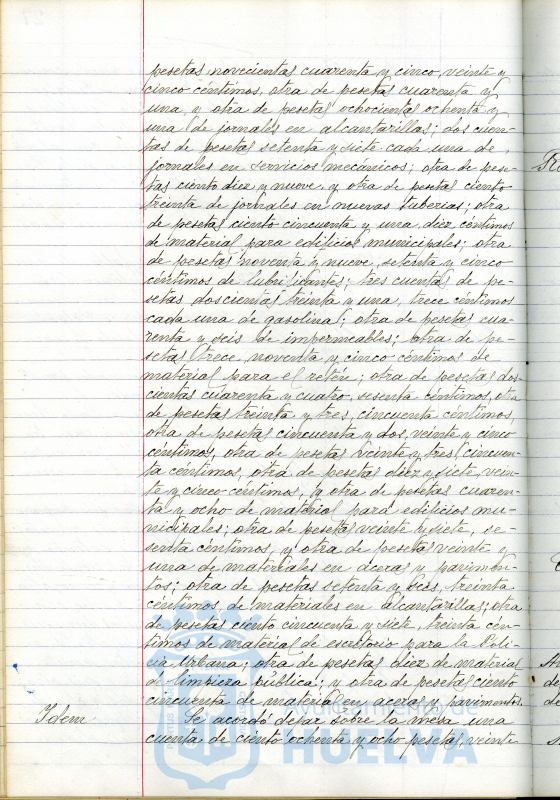 pesetas novecientas cuarenta y cinco, veinte y
cinco céntimos, otra de pesetas cuarenta y
una, y otra de pesetas ochocientas ochenta y
una de jornales en alcantarillas; dos cuen-
tas de pesetas setenta y siete cada una de
jornales en servicios mecánicos; otra de pese-
tas ciento diez y nueve, y otra de pesetas ciento
treinta de jornales en nuevas tuberias; otra
de pesetas ciento cincuenta y una, diez céntimos
de material para edificios municipales; otra
de pesetas noventa y nueve, setenta y cinco
céntimos de lubrificantes; tres cuentas de pe-
setas doscientas treinta y una, trece céntimos
cada una de gasolina; otra de pesetas cua-
renta y seis de impermeables; otra de pe-
setas trece, noventa y cinco céntimos de
material para el retén; otra de pesetas dos-
cientas cuarenta y cuatro, sesenta céntimos, otra
de pesetas treinta y tres, cincuenta céntimos,
otra de pesetas cincuenta y dos, veinte y cinco
céntimos, otra de pesetas veinte y tres, cincuen-
ta céntimos, otra de pesetas diez y siete, vein-
te y cinco céntimos, y otra de pesetas cuaren-
ta y ocho de material para edificios mu-
nicipales; otra de pesetas veinte y siete, se-
senta céntimos, y otra de pesetas veinte y
una de materiales en aceras y pavimen-
tos; otra de pesetas setenta y seis, treinta
céntimos, de materiales en alcantarillas; otra
de pesetas ciento cincuenta y siete, treinta cén-
timos de material de escritorio para la Poli-
cia Urbana; otra de pesetas diez de material
de limpieza pública; y otra de pesetas ciento
cincuenta de material en aceras y pavimentos.
Idem
Se acordó dejar sobre la mesa una
cuenta de ciento ochenta y ocho pesetas, veinte
HUELVA